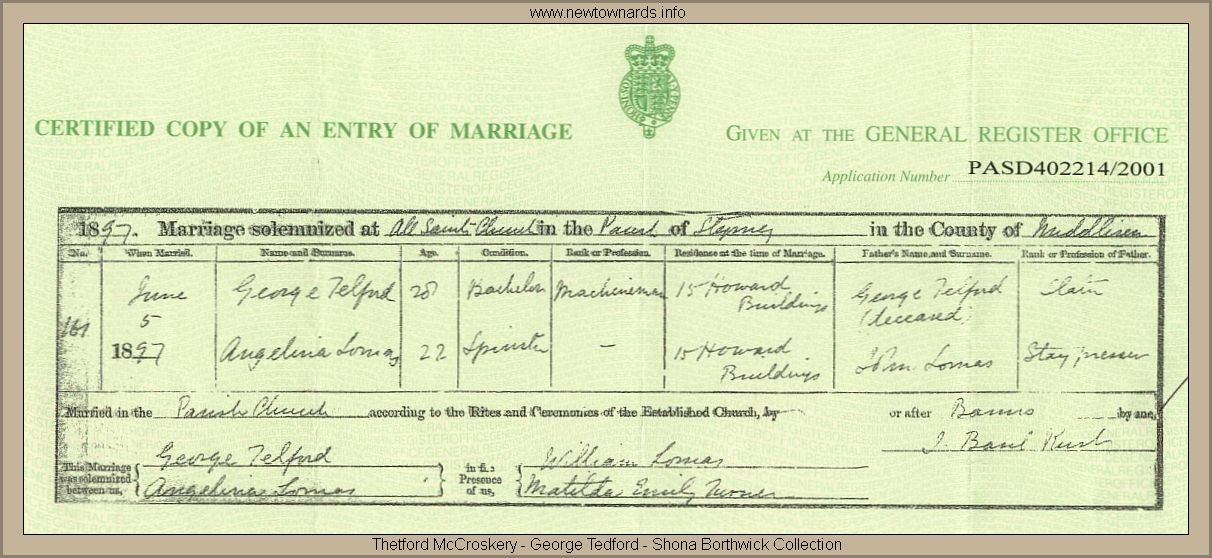 www.newtownards.info
CERTIFIED COPY OF AN ENTRY OF MARRIAGE
GIVEN AT THE GENERAL REGISTER OFFICE
Application Number PASD402214/2001
1897. Marriage solemnized at All Saints Church in the Parish of Stepney in the County of Middlesex
No. When Married. Name and Surname. Age. Condition. Rank or Profession. Residence at the time of Marriage. Father's Name and Surname. Rank or Profession of Father.
161 June 5 1897
George Telford 28 Bachelor Machineman 15 Howard Buildings George Telford (deceased)
Angelina Lomas 22 Spinster — 15 Howard Buildings John Lomas Stay presser
Married in the Parish Church according to the Rites and Ceremonies of the Established Church, by or after Banns by me,
This Marriage was solemnized between us, George Telford
Angelina Lomas
in the Presence of us, William Lomas
Matilda Emily Turner
Thetford McCroskery - George Tedford - Shona Borthwick Collection